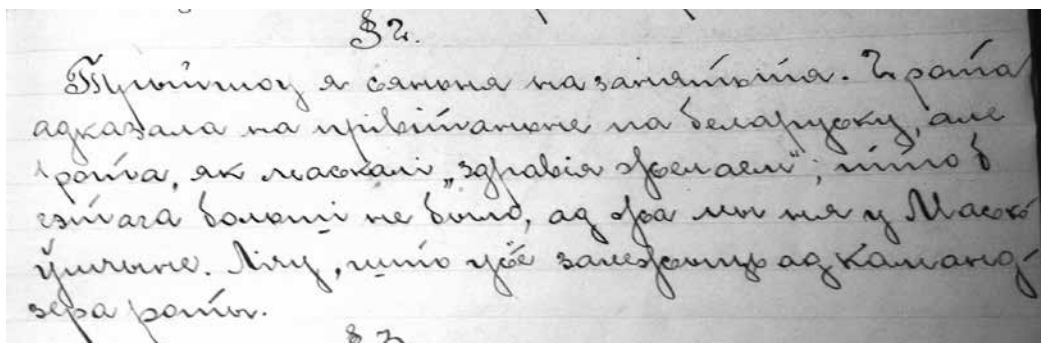 § 2.
Прыйшоў я сяньня на заняткі. 2 рота
адказала на прывітаньне па беларуску, але
1 рота, як маскалі „здравія желаем"; што б
гэтага больш не было, ад жа мы ня у Маско
ўшчыне. Лічу, што усё залежыць ад каманд-
зера роты.
§ 3